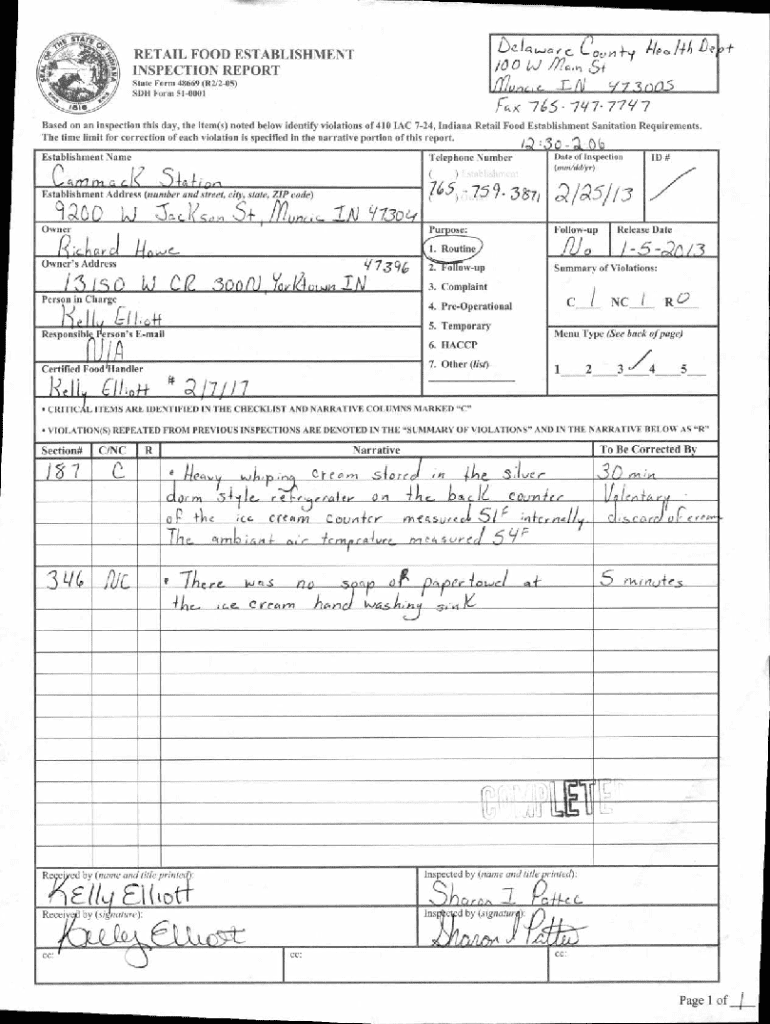 RETAIL FOOD ESTABLISHMENT
INSPECTION REPORT
State Form 48669 (R2/2-05)
SDH Form 51-0001
Delaware County Health Dept
100 W Main St
Muncie IN 47305
Fax 765-747-7747
Based on an inspection this day, the item(s) noted below identify violations of 410 IAC 7-24, Indiana Retail Food Establishment Sanitation Requirements.
The time limit for correction of each violation is specified in the narrative portion of this report.
12:30-2:06
Establishment Name
Cammack Station
Telephone Number
( ) Establishment
765-759-3871
Date of Inspection
(mm/dd/yr)
2/25/13
ID #
Establishment Address (number and street, city, state, ZIP code)
9200 W Jackson St, Muncie IN 47304
Owner
Richard Howe
Purpose:
1. Routine
2. Follow-up
3. Complaint
4. Pre-Operational
5. Temporary
6. HACCP
7. Other (list)
Follow-up
No
Release Date
1-5-2013
Owner's Address
47396
13150 W CR 300N, Yorktown IN
Summary of Violations:
C 1 NC 1 R 0
Person in Charge
Kelly Elliott
Responsible Person's E-mail
N/A
Menu Type (See back of page)
1 2 3 4 5
Certified Food Handler
Kelly Elliott # 2/7/17
• CRITICAL ITEMS ARE IDENTIFIED IN THE CHECKLIST AND NARRATIVE COLUMNS MARKED "C"
• VIOLATION(S) REPEATED FROM PREVIOUS INSPECTIONS ARE DENOTED IN THE "SUMMARY OF VIOLATIONS" AND IN THE NARRATIVE BELOW AS "R"
Section# C/NC R Narrative To Be Corrected By
187 C • Heavy whiping cream stored in the silver 30 min
dorm style refrigerater on the back counter Volentary
of the ice cream counter measured 51F internally. discard of cream
The ambiant air temprature measured 54F
346 NC • There was no soap or papertowel at 5 minutes
the ice cream hand washing sink
COMPLETE
Received by (name and title printed):
Kelly Elliott
Inspected by (name and title printed):
Sharon I Pattee
Received by (signature):
Kelly Elliott
Inspected by (signature):
Sharon I Pattee
cc: cc: cc:
Page 1 of 1